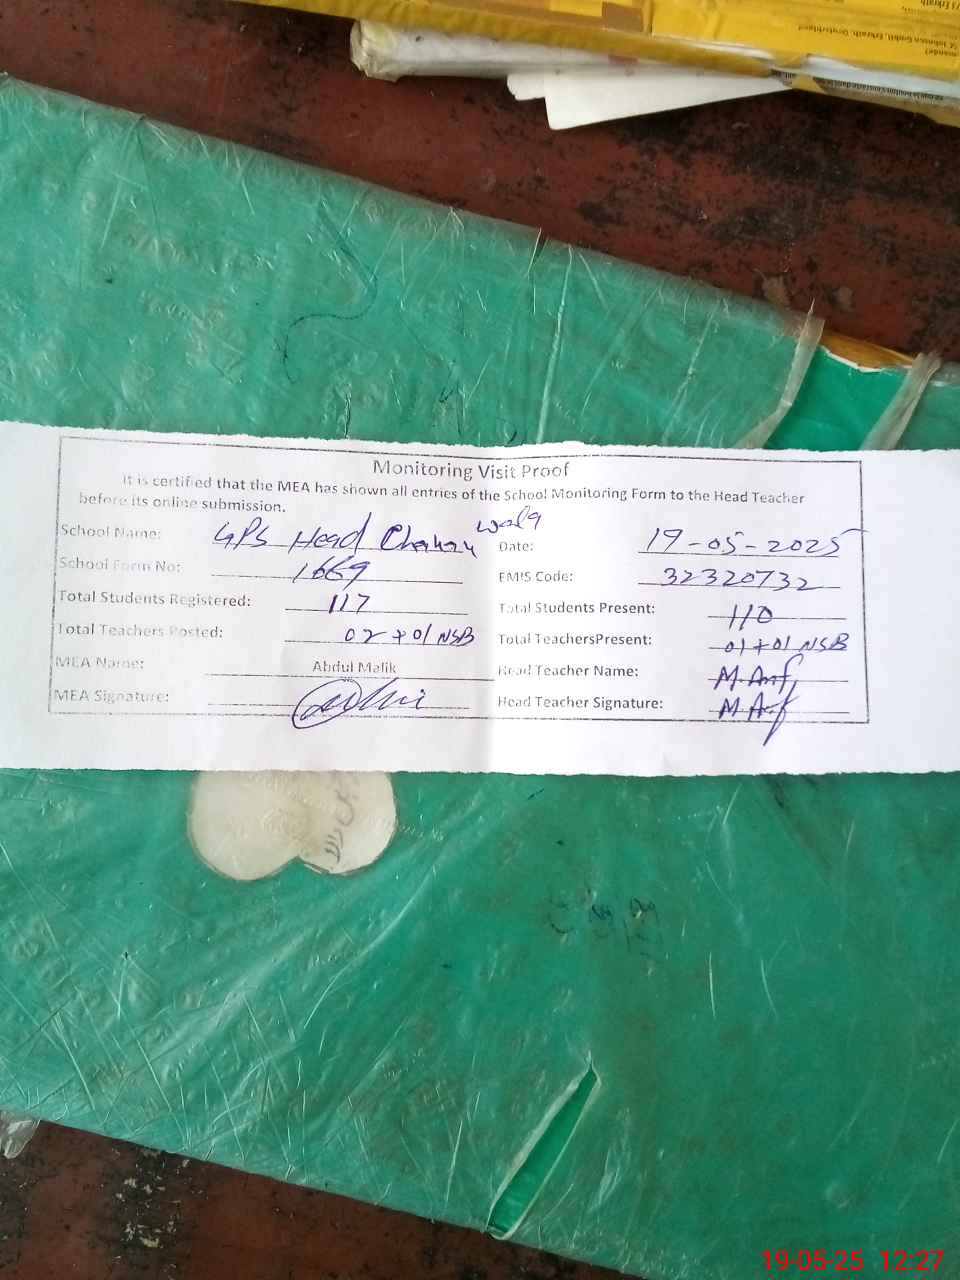 Monitoring Visit Proof
It is certified that the MEA has shown all entries of the School Monitoring Form to the Head Teacher
before its online submission.
School Name: GPS Head Chakar wala Date: 19-05-2025
School Form No: 1669 EMIS Code: 32320732
Total Students Registered: 117 Total Students Present: 110
Total Teachers Posted: 02 + 01 NSB Total TeachersPresent: 01 + 01 NSB
MEA Name: Abdul Malik Head Teacher Name: M.
MEA Signature: Head Teacher Signature: M.
19-05-25 12:27